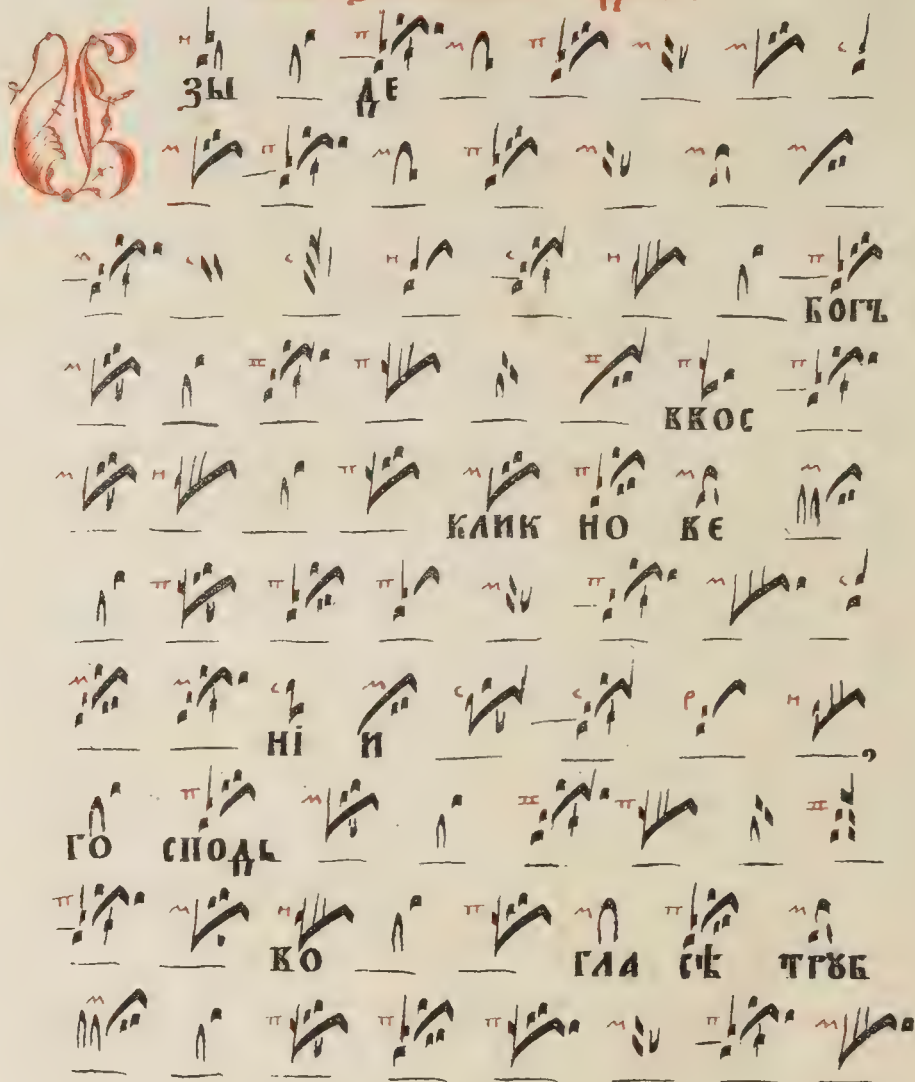 В ЗЫ ДЕ
БОГЪ
ВВОС
КЛИК НО ВЕ
НІ И ,
ГО СПОДЬ
ВО ГЛА СѢ ТРꙊБ